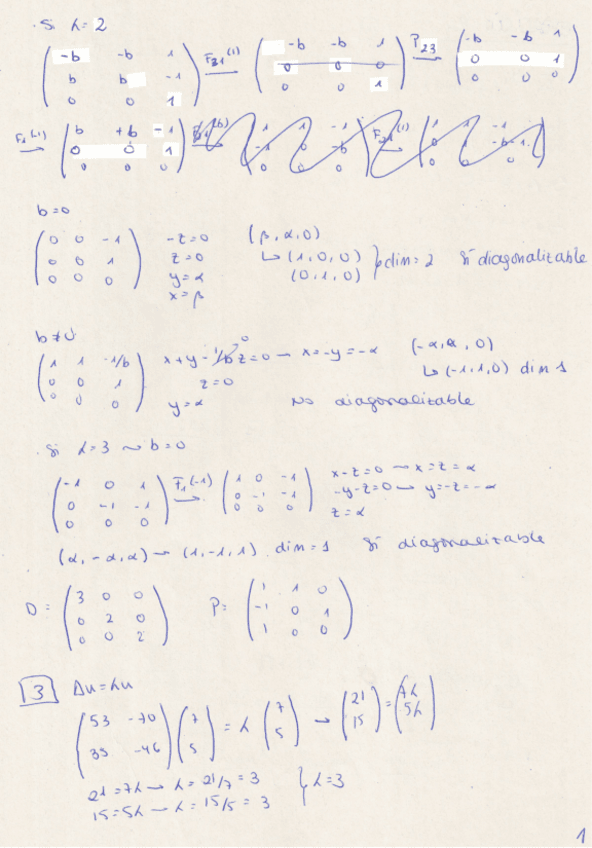 · Si λ = 2
( -b -b 1 ; b b -1 ; 0 0 1 ) F₂₁(1) → ( -b -b 1 ; 0 0 0 ; 0 0 1 ) P₂₃ → ( -b -b 1 ; 0 0 1 ; 0 0 0 )
F₁(-1) → ( b +b -1 ; 0 0 1 ; 0 0 0 )
b=0
( 0 0 -1 ; 0 0 1 ; 0 0 0 ) -z=0 z=0 y=α x=β (β, α, 0) ↳ (1, 0, 0) (0, 1, 0) } dim = 2 Sí diagonalizable
b≠0
( 1 1 -1/b ; 0 0 1 ; 0 0 0 ) x+y-1/b z=0 → x=-y=-α z=0 y=α (-α, α, 0) ↳ (-1, 1, 0) dim 1
No diagonalizable
· Si λ=3 ~ b=0
( -1 0 1 ; 0 -1 -1 ; 0 0 0 ) F₁(-1) → ( 1 0 -1 ; 0 -1 -1 ; 0 0 0 ) x-z=0 → x=z=α -y-z=0 → y=-z=-α z=α
(α, -α, α) → (1, -1, 1) dim = 1 Sí diagonalizable
D = ( 3 0 0 ; 0 2 0 ; 0 0 2 ) P = ( 1 1 0 ; -1 0 1 ; 1 0 0 )
3 Au=λu
( 53 -70 ; 35 -46 ) ( 7 ; 5 ) = λ ( 7 ; 5 ) → ( 21 ; 15 ) = ( 7λ ; 5λ )
21=7λ → λ=21/7=3
15=5λ → λ=15/5=3 } λ=3
1